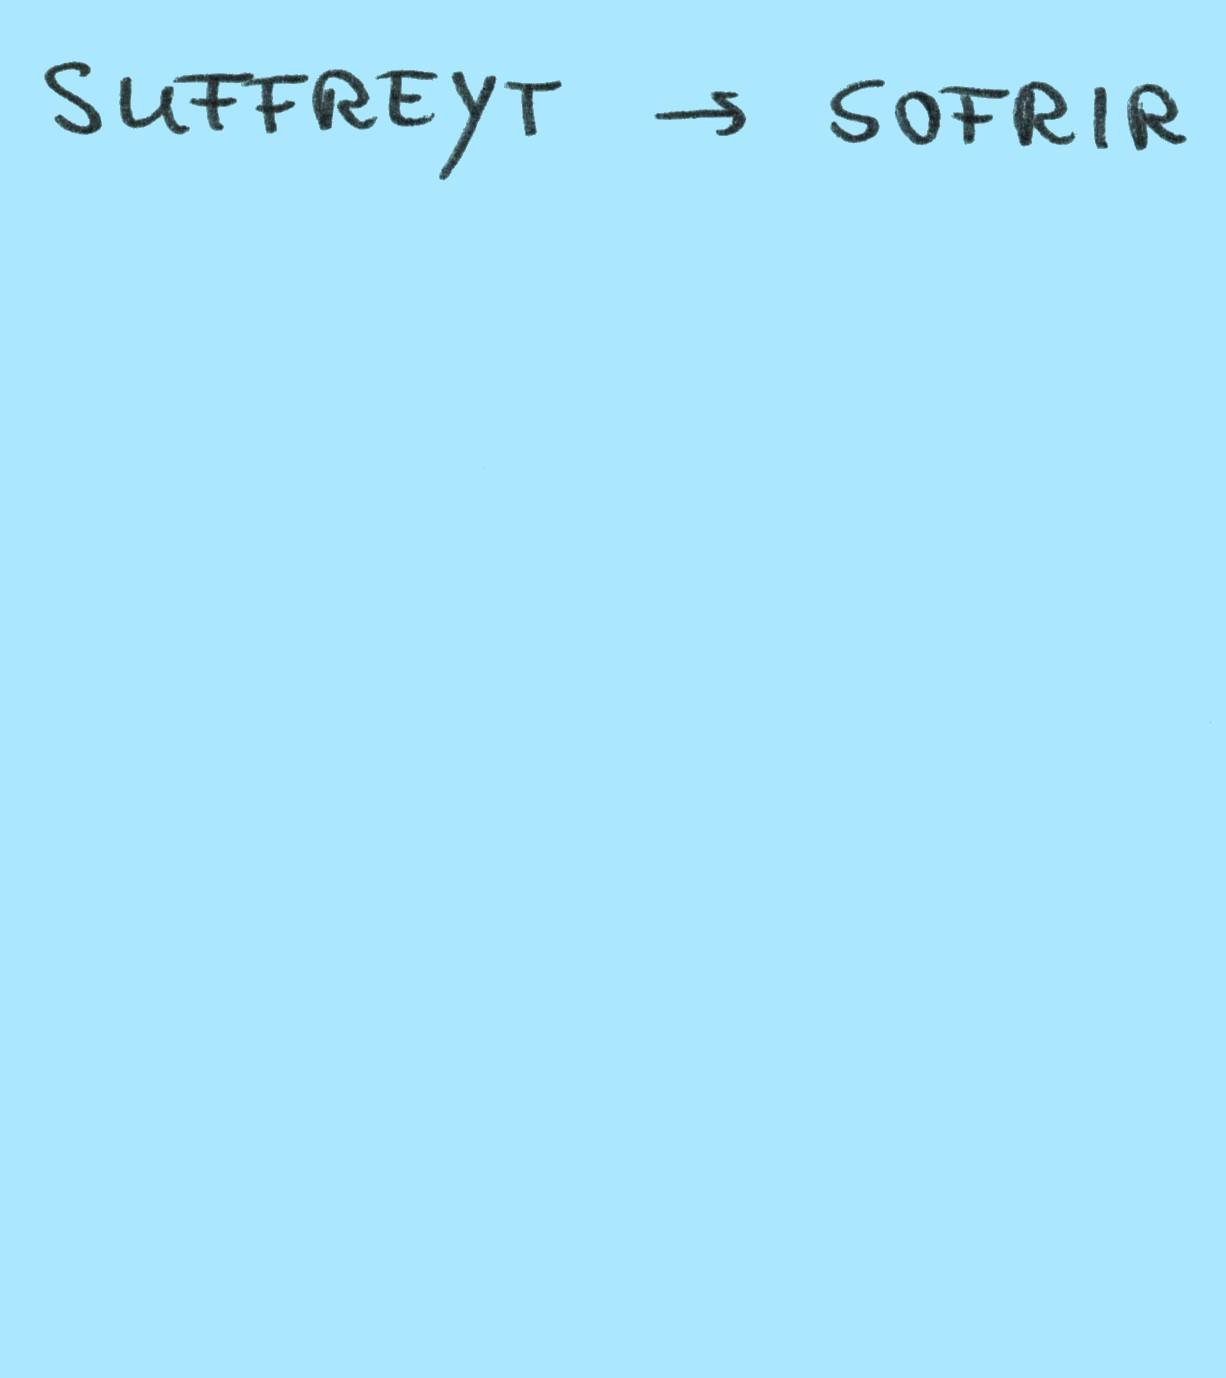 SUFFREYT → SOFRIR